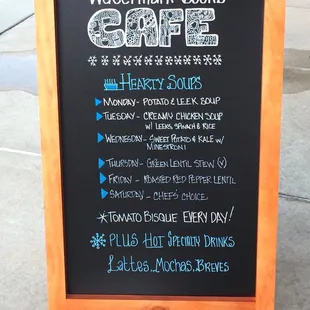 Watermark Books
CAFE
Hearty Soups
Monday - Potato & Leek Soup
Tuesday - Creamy Chicken Soup
w/ Leeks, Spinach & Rice
Wednesday - Sweet Potato & Kale w/
Minestroni
Thursday - Green Lentil Stew (V)
Friday - Roasted Red Pepper Lentil
Saturday - Chefs' Choice
*Tomato Bisque EVERY DAY!
PLUS Hot Specialty Drinks
Lattes, Mochas, Breves